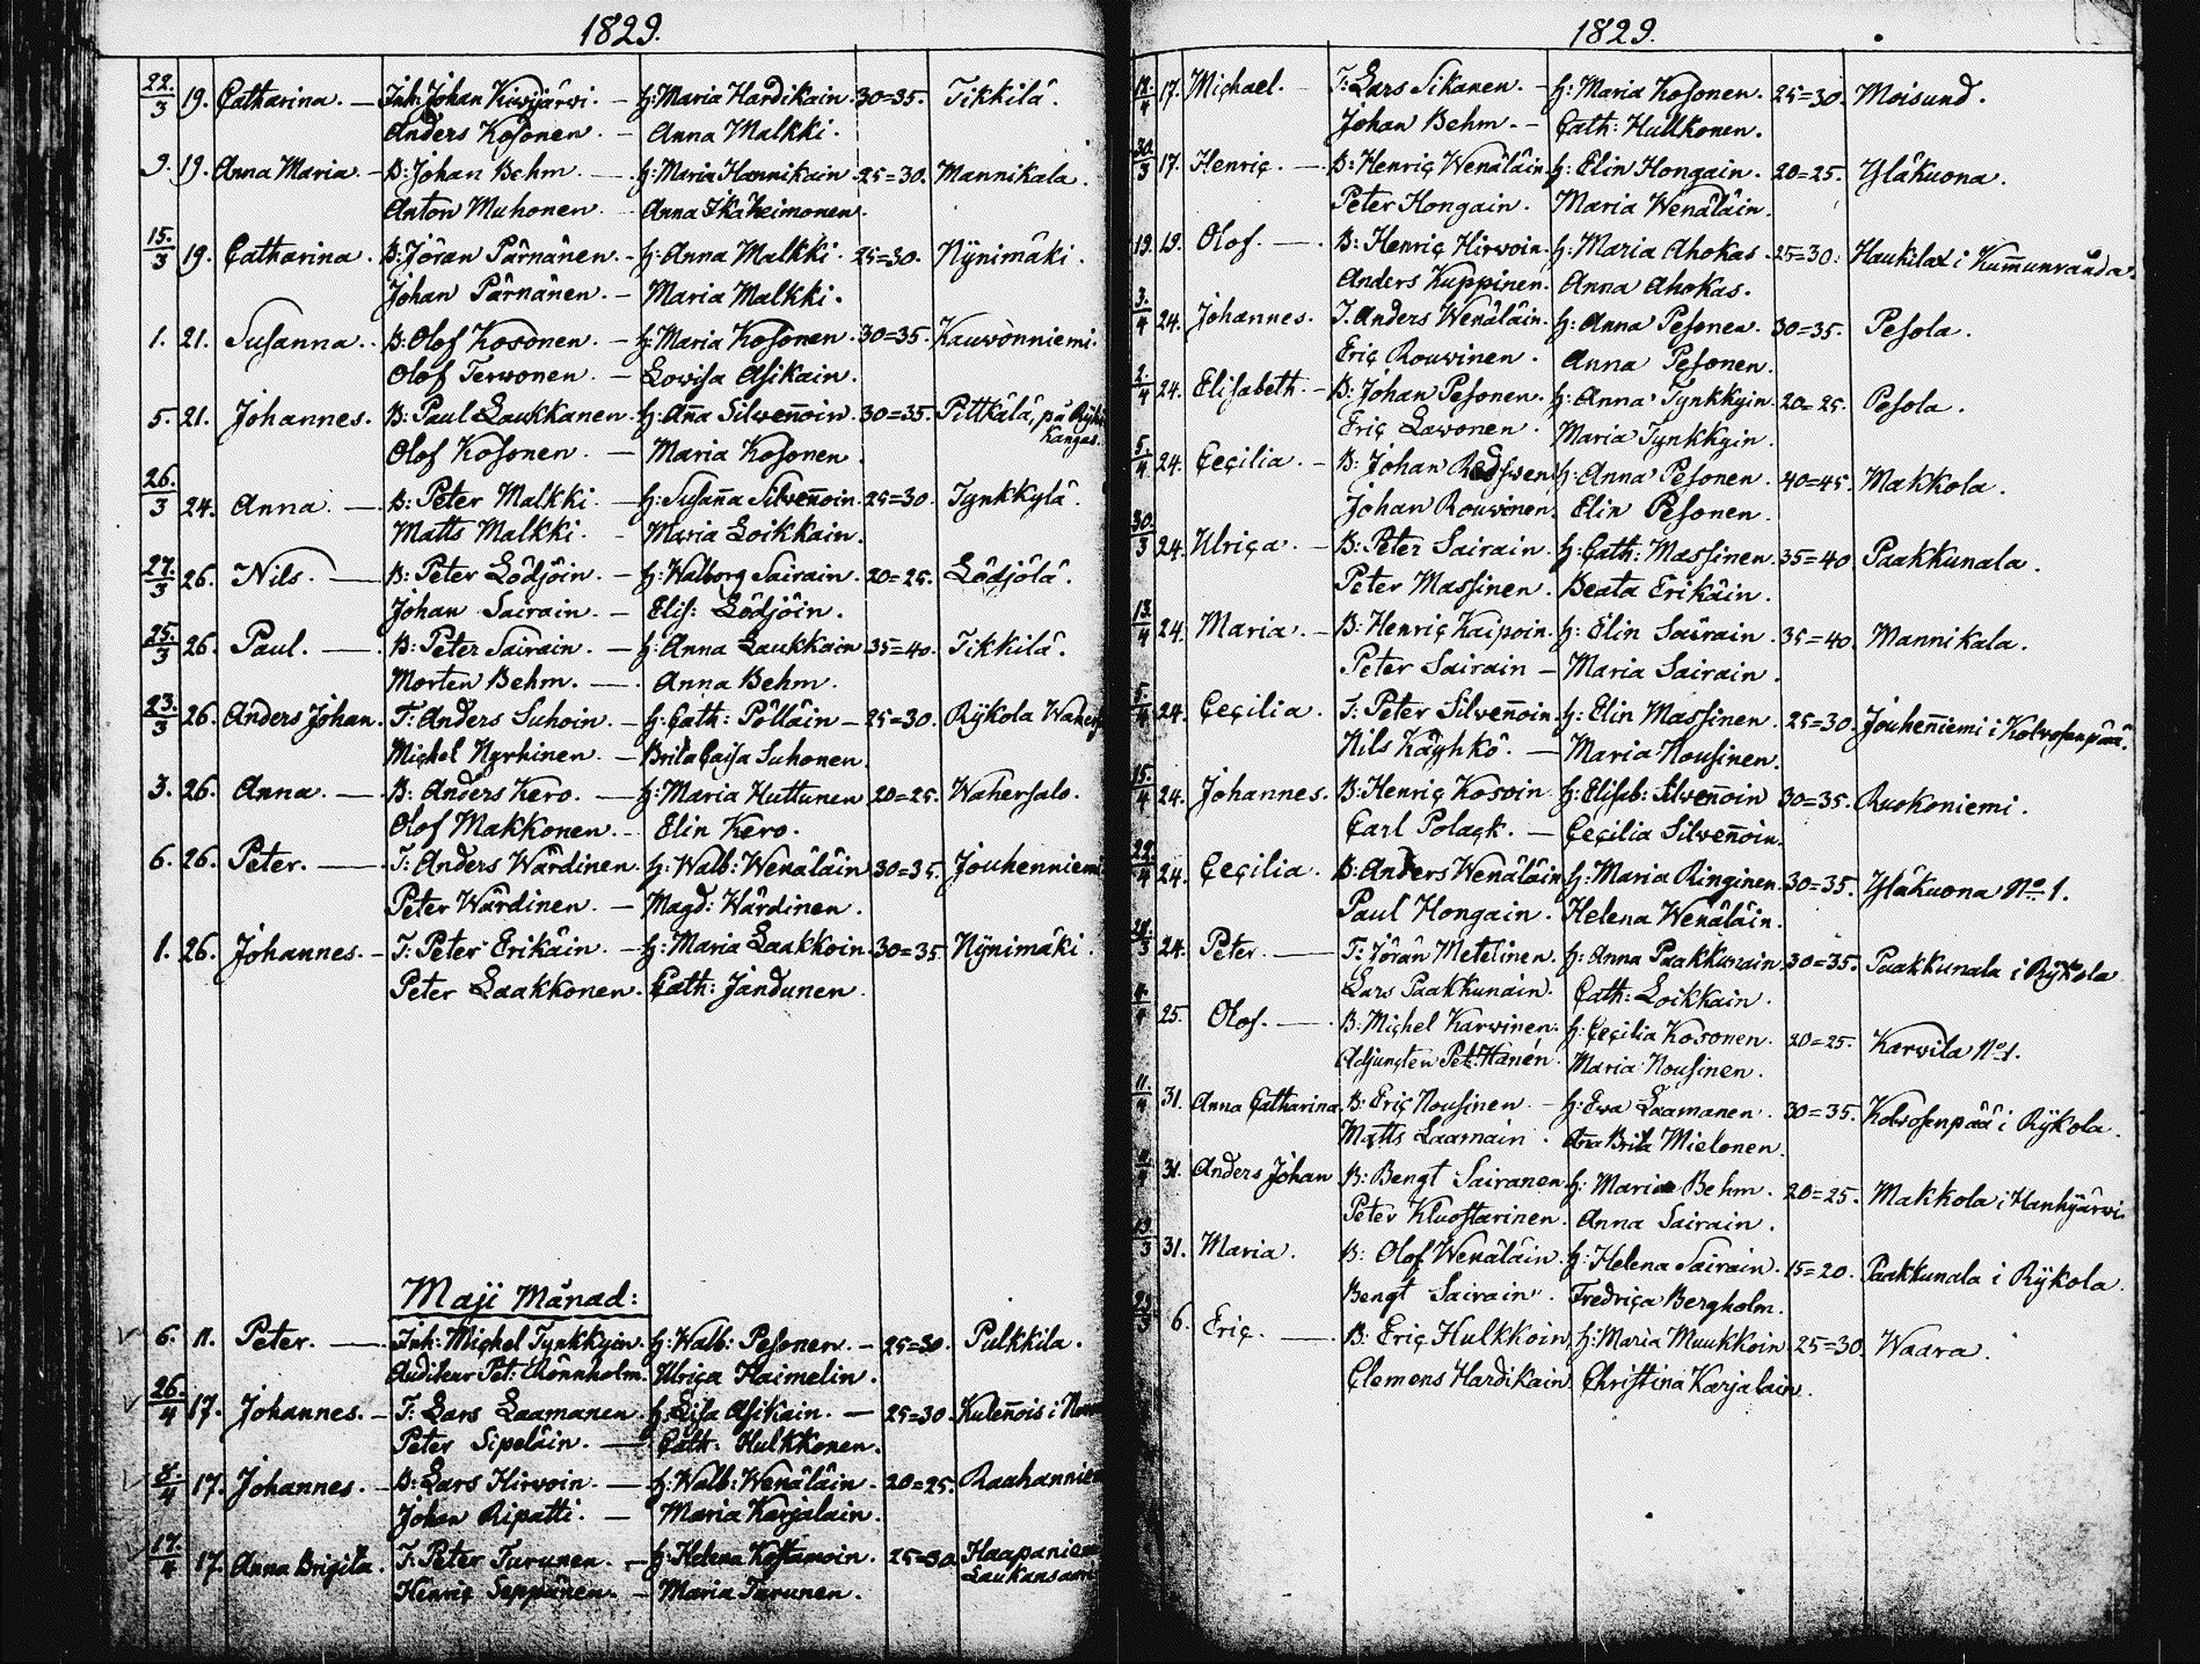 1829.
22./3 19. Catharina. — Inh: Johan Kiwijärwi. — H: Maria Hardikain. 30=35. Tikkilä.
Anders Kosonen. — Anna Malkki.
9. 19. Anna Maria. — B: Johan Behm. — H: Maria Hannikain. 25=30. Mannikala.
Anton Muhonen. Anna Ikäheimonen.
15./3 19. Catharina. B: Jöran Pärnänen. — H: Anna Malkki. 25=30. Nÿnimäki.
Johan Pärnänen. — Maria Malkki.
1. 21. Susanna. B: Olof Kosonen. — H: Maria Kosonen. 30=35. Kauwonniemi.
Olof Terwonen. — Lowisa Asikain.
5. 21. Johannes. B: Paul Laukkanen. H: Aña Silweñoin. 30=35. Pittkälä, på
Kangas.
Olof Kosonen. — Maria Kosonen.
26./3 24. Anna. — B: Peter Malkki. — H: Susaña Silweñoin. 25=30. Tynkkylä.
Matts Malkki. - Maria Loikkain.
27./3 26. Nils. — B: Peter Lödjöin. — H: Walborg Sairain. 20=25. Lödjölä.
Johan Sairain. — Elis: Lödjöin.
25./3 26. Paul. — B: Peter Sairain. — H: Anna Laukkain. 35=40. Tikkilä.
Morten Behm. — Anna Behm.
23./3 26. Anders Johan. T: Anders Suhoin. — H: Cath: Pölläin — 25=30. Rÿkola
Michel Nyrhinen — Brita Caisa Suhonen.
3. 26. Anna. — B: Anders Kero. — H: Maria Huttunen 20=25. Wahersalo.
Olof Makkonen. — Elin Kero.
6. 26. Peter. — T: Anders Wärdinen. H: Walb: Wenäläin 30=35. Jouhenniemi
Peter Wärdinen. — Magd: Wärdinen.
1. 26. Johannes. — T: Peter Erikäin. — H: Maria Laakkoin. 30=35. Nÿnimäki.
Peter Laakkonen. Cath: Jandunen.
Maji Månad:
6. 11. Peter. — Inh: Michel Tynkkyin. H: Walb: Pesonen. — 25=30. Pulkkila.
Auditeur Pet: Ulrica Haimelin.
26./4 17. Johannes. — T: Lars Laamanen. H: Lisa Asikain. — 25=30. Kuleñois i
Peter Sipeläin. — Cath: Hulkkonen.
17. Johannes. — B: Lars Hirwoin. — H: Walb: Wenäläin. 20=25. Raahanniemi
Johan Ripatti. — Maria Karjalain.
17./4 17. Anna Brigita. T: Peter Turunen. — H: Helena 25=30. Haapaniemi
Laukansaari
Henric Seppänen. — Maria Turunen.
1829.
12./4 17. Michael. — T: Lars Sikanen. — H: Maria Kosonen. 25=30. Moisund.
Johan Behm. — Cath: Hullkonen.
30./3 17. Henric. — B: Henric Wenäläin. H: Elin Hongain. 20=25. Yläkuona.
Peter Hongain. Maria Wenäläin.
19. 19. Olof. — B: Henric Hirwoin. H: Maria Ahokas. 25=30. Haukilax i Kum̄unranda.
Anders Kuppinen. Anna Ahokas.
3./4 24. Johannes. T. Anders Wenäläin. H: Anna Pesonen. 30=35. Pesola.
Eric Rouwinen. Anna Pesonen.
2./4 24. Elisabeth. — B: Johan Pesonen. H: Anna Tynkkyin. 20=25. Pesola.
Eric Lawonen. Maria Tynkkyin.
5./4 24. Cecilia. — B: Johan Redswen H: Anna Pesonen. 40=45. Makkola.
Johan Rouwinen. Elin Pesonen.
30./3 24. Ulrica. — B: Peter Sairain. H: Cath: Massinen. 35=40. Paakkunala.
Peter Massinen. Beata Erikäin.
13./4 24. Maria. — B: Henric Kaipoin. H: Elin Sairain. 35=40. Mannikala.
Peter Sairain — Maria Sairain.
5./4 24. Cecilia. T: Peter Silweñoin. H: Elin Massinen. 25=30. Jouheñiemi i Kolwosenpää.
Nils Käyhkö. — Maria Nousinen.
15./4 24. Johannes. B: Henric Kosoin H: Elisab: Silweñoin 30=35. Ruokoniemi.
Carl Polack. — Cecilia Silweñoin.
22./4 24. Cecilia. B: Anders Wenäläin H: Maria Ringinen. 30=35. Yläkuona No. 1.
Paul Hongain. Helena Wenäläin.
24. Peter. — T: Jöran Metelinen. H: Anna Paakkunain. 30=35. Paakkunala i Rÿkola
Lars Paakkunain. Cath: Loikkain.
25. Olof. — B: Michel Karwinen. H: Cecilia Kosonen. 20=25. Karwila No 1.
Adjuncten Pet: Hanén. Maria Nousinen.
11./4 31. Anna Catharina. B: Eric Nousinen — H: Ewa Laamanen. 30=35. Kolwosenpää i Rÿkola.
Matts Laamain. Aña Brita Mielonen.
31. Anders Johan B: Bengt Sairanen H: Maria Behm. 20=25. Makkola i Hanhijärwi
Peter Kluostarinen. Anna Sairain.
31. Maria. B: Olof Wenäläin. H: Helena Sairain. 15=20. Paakkunala i Rÿkola.
Bengt Sairain. Fredrica Bergholm.
6. Eric. — B: Eric Hulkkoin. H: Maria Muukkoin 25=30. Waara.
Clemens Hardikain. Christina Karjalain.